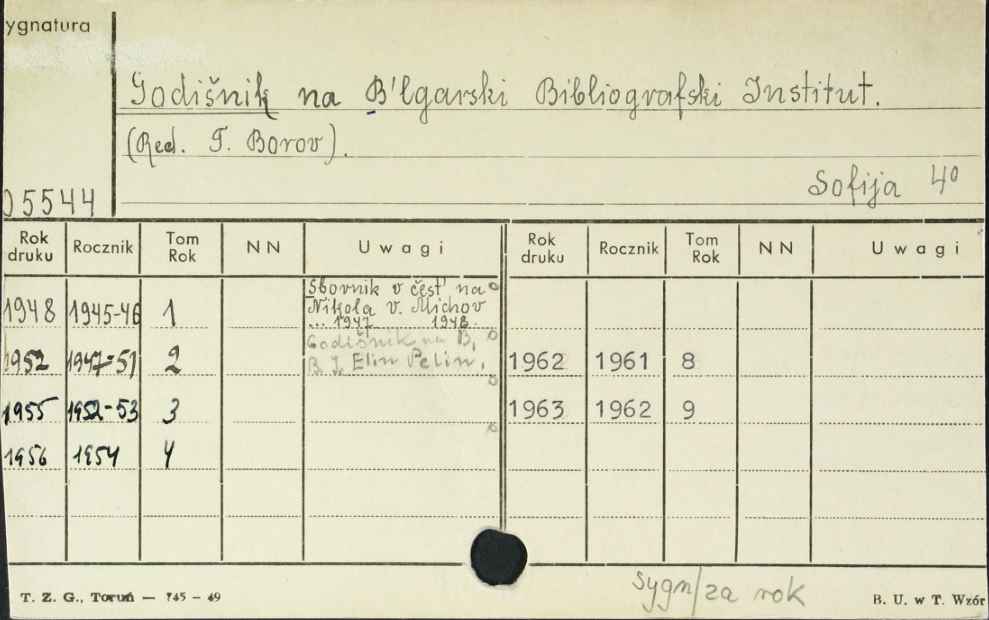 ygnatura
Godišnik na B'lgarski Bibliografski Institut.
(Red. T. Borov).
Sofija 4°
05544
Rok druku Rocznik Tom Rok NN Uwagi Rok druku Rocznik Tom Rok NN Uwagi
1948 1945-46 1 Sbornik v čest' na
Nikola v. Michov
... 1947 1948
1952 1947-51 2 Godišnik na B.
B. I. Elin Pelin. 1962 1961 8
1955 1952-53 3 1963 1962 9
1956 1954 4
sygn/za rok
T. Z. G., Toruń — 745 — 49
B. U. w T. Wzór